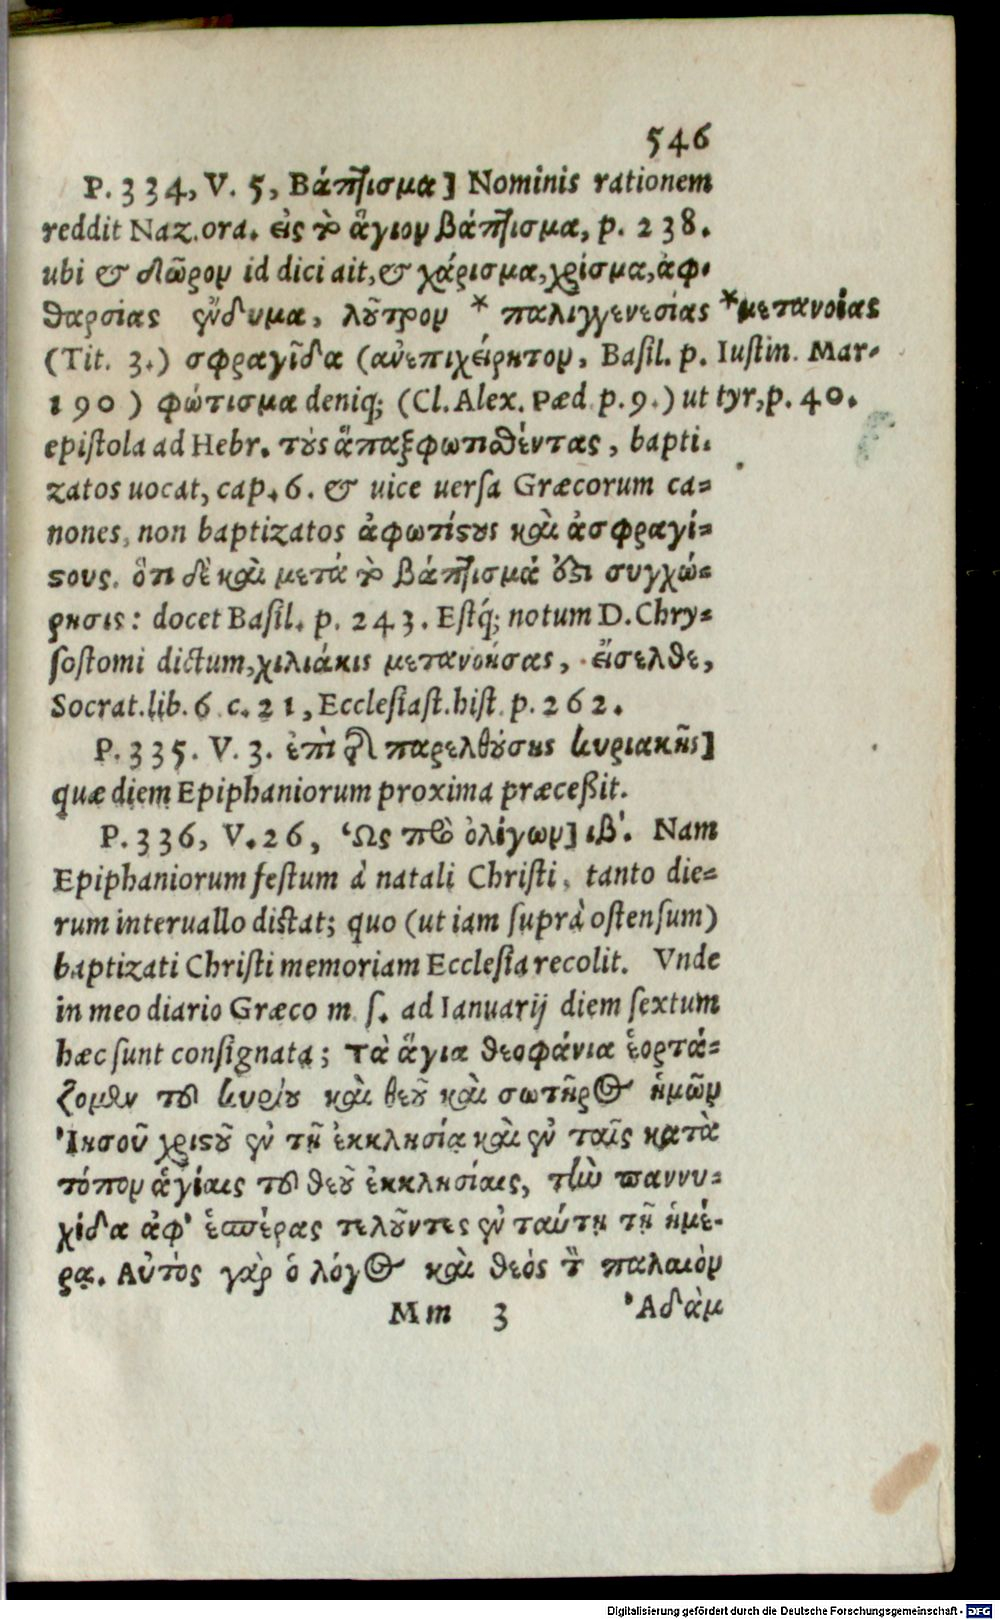 546
P. 334, V. 5, Βάπτισμα] Nominis rationem
reddit Naz. ora. εἰς τὸ ἅγιον βάπτισμα, p. 238.
ubi & δῶρον id dici ait, & χάρισμα, χρίσμα, ἀφ-
θαρσίας ἔνδυμα, λοῦτρον * παλιγγενεσίας *μετανοίας
(Tit. 3.) σφραγῖδα (ἀνεπιχείρητον, Basil. p. Iustin. Mar-
190) φώτισμα deniq; (Cl. Alex. Pæd. p. 9.) ut tyr, p. 40.
epistola ad Hebr. τοὺς ἅπαξ φωτισθέντας, bapti-
zatos uocat, cap. 6. & uice uersa Græcorum ca=
nones, non baptizatos ἀφωτίστους καὶ ἀσφραγί=
στους. ὅτι δὲ καὶ μετὰ τὸ βάπτισμά ἐστι συγχώ=
ρησις: docet Basil. p. 243. Estq́; notum D. Chry=
sostomi dictum, χιλιάκις μετανοήσας, εἴσελθε,
Socrat. lib. 6 c. 21, Ecclesiast. hist. p. 262.
P. 335. V. 3. ἐπὶ τῆς παρελθούσης κυριακῆς]
quæ diem Epiphaniorum proxima præceßit.
P. 336, V. 26, Ὡς πρὸ ὀλίγων] ιβʹ. Nam
Epiphaniorum festum à natali Christi, tanto die=
rum interuallo distat; quo (ut iam suprà ostensum)
baptizati Christi memoriam Ecclesia recolit. Vnde
in meo diario Græco m. s. ad Ianuarij diem sextum
hæc sunt consignata; τὰ ἅγια θεοφάνια ἑορτά=
ζομεν τοῦ κυρίου καὶ θεοῦ καὶ σωτῆρος ἡμῶν
Ἰησοῦ χριστοῦ ἐν τῇ ἐκκλησίᾳ καὶ ἐν ταῖς κατὰ
τόπον ἁγίαις τοῦ θεοῦ ἐκκλησίαις, τὴν παννυ=
χίδα ἀφ' ἑσπέρας τελοῦντες ἐν ταύτῃ τῇ ἡμέ-
ρᾳ. Αὐτὸς γὰρ ὁ λόγος καὶ θεὸς τὸν παλαιὸν
Mm 3 Ἀδὰμ
Digitalisierung gefördert durch die Deutsche Forschungsgemeinschaft - DFG